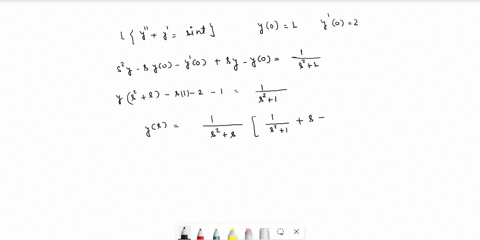 L { y'' + y' = sint }   y(0) = 1   y'(0) = 2
s²y - s y(0) - y'(0) + sy - y(0) = 1/(s²+1)
y(s² + s) - s(1) - 2 - 1 = 1/(s²+1)
y(s) = 1/(s² + s) [ 1/(s²+1) + s -